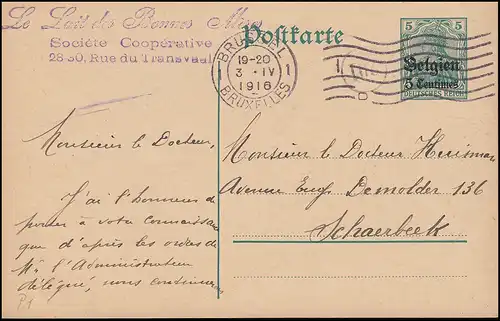 Le Lait des Bonnes Mères
Société Coopérative
28-30, Rue du Transvaal
Postkarte
BRUSSEL
19-20
3 - IV
1 1
1916
BRUXELLES
5 5
Belgien
5 Centimes
DEUTSCHES REICH
Monsieur le Docteur,
J'ai l'honneur de
porter à votre connaissance
que d'après les ordres de
Mr l'Administrateur
délégué, nous continuons
P1
Monsieur le Docteur Huisman
Avenue Eug. Demolder 136
Schaerbeek